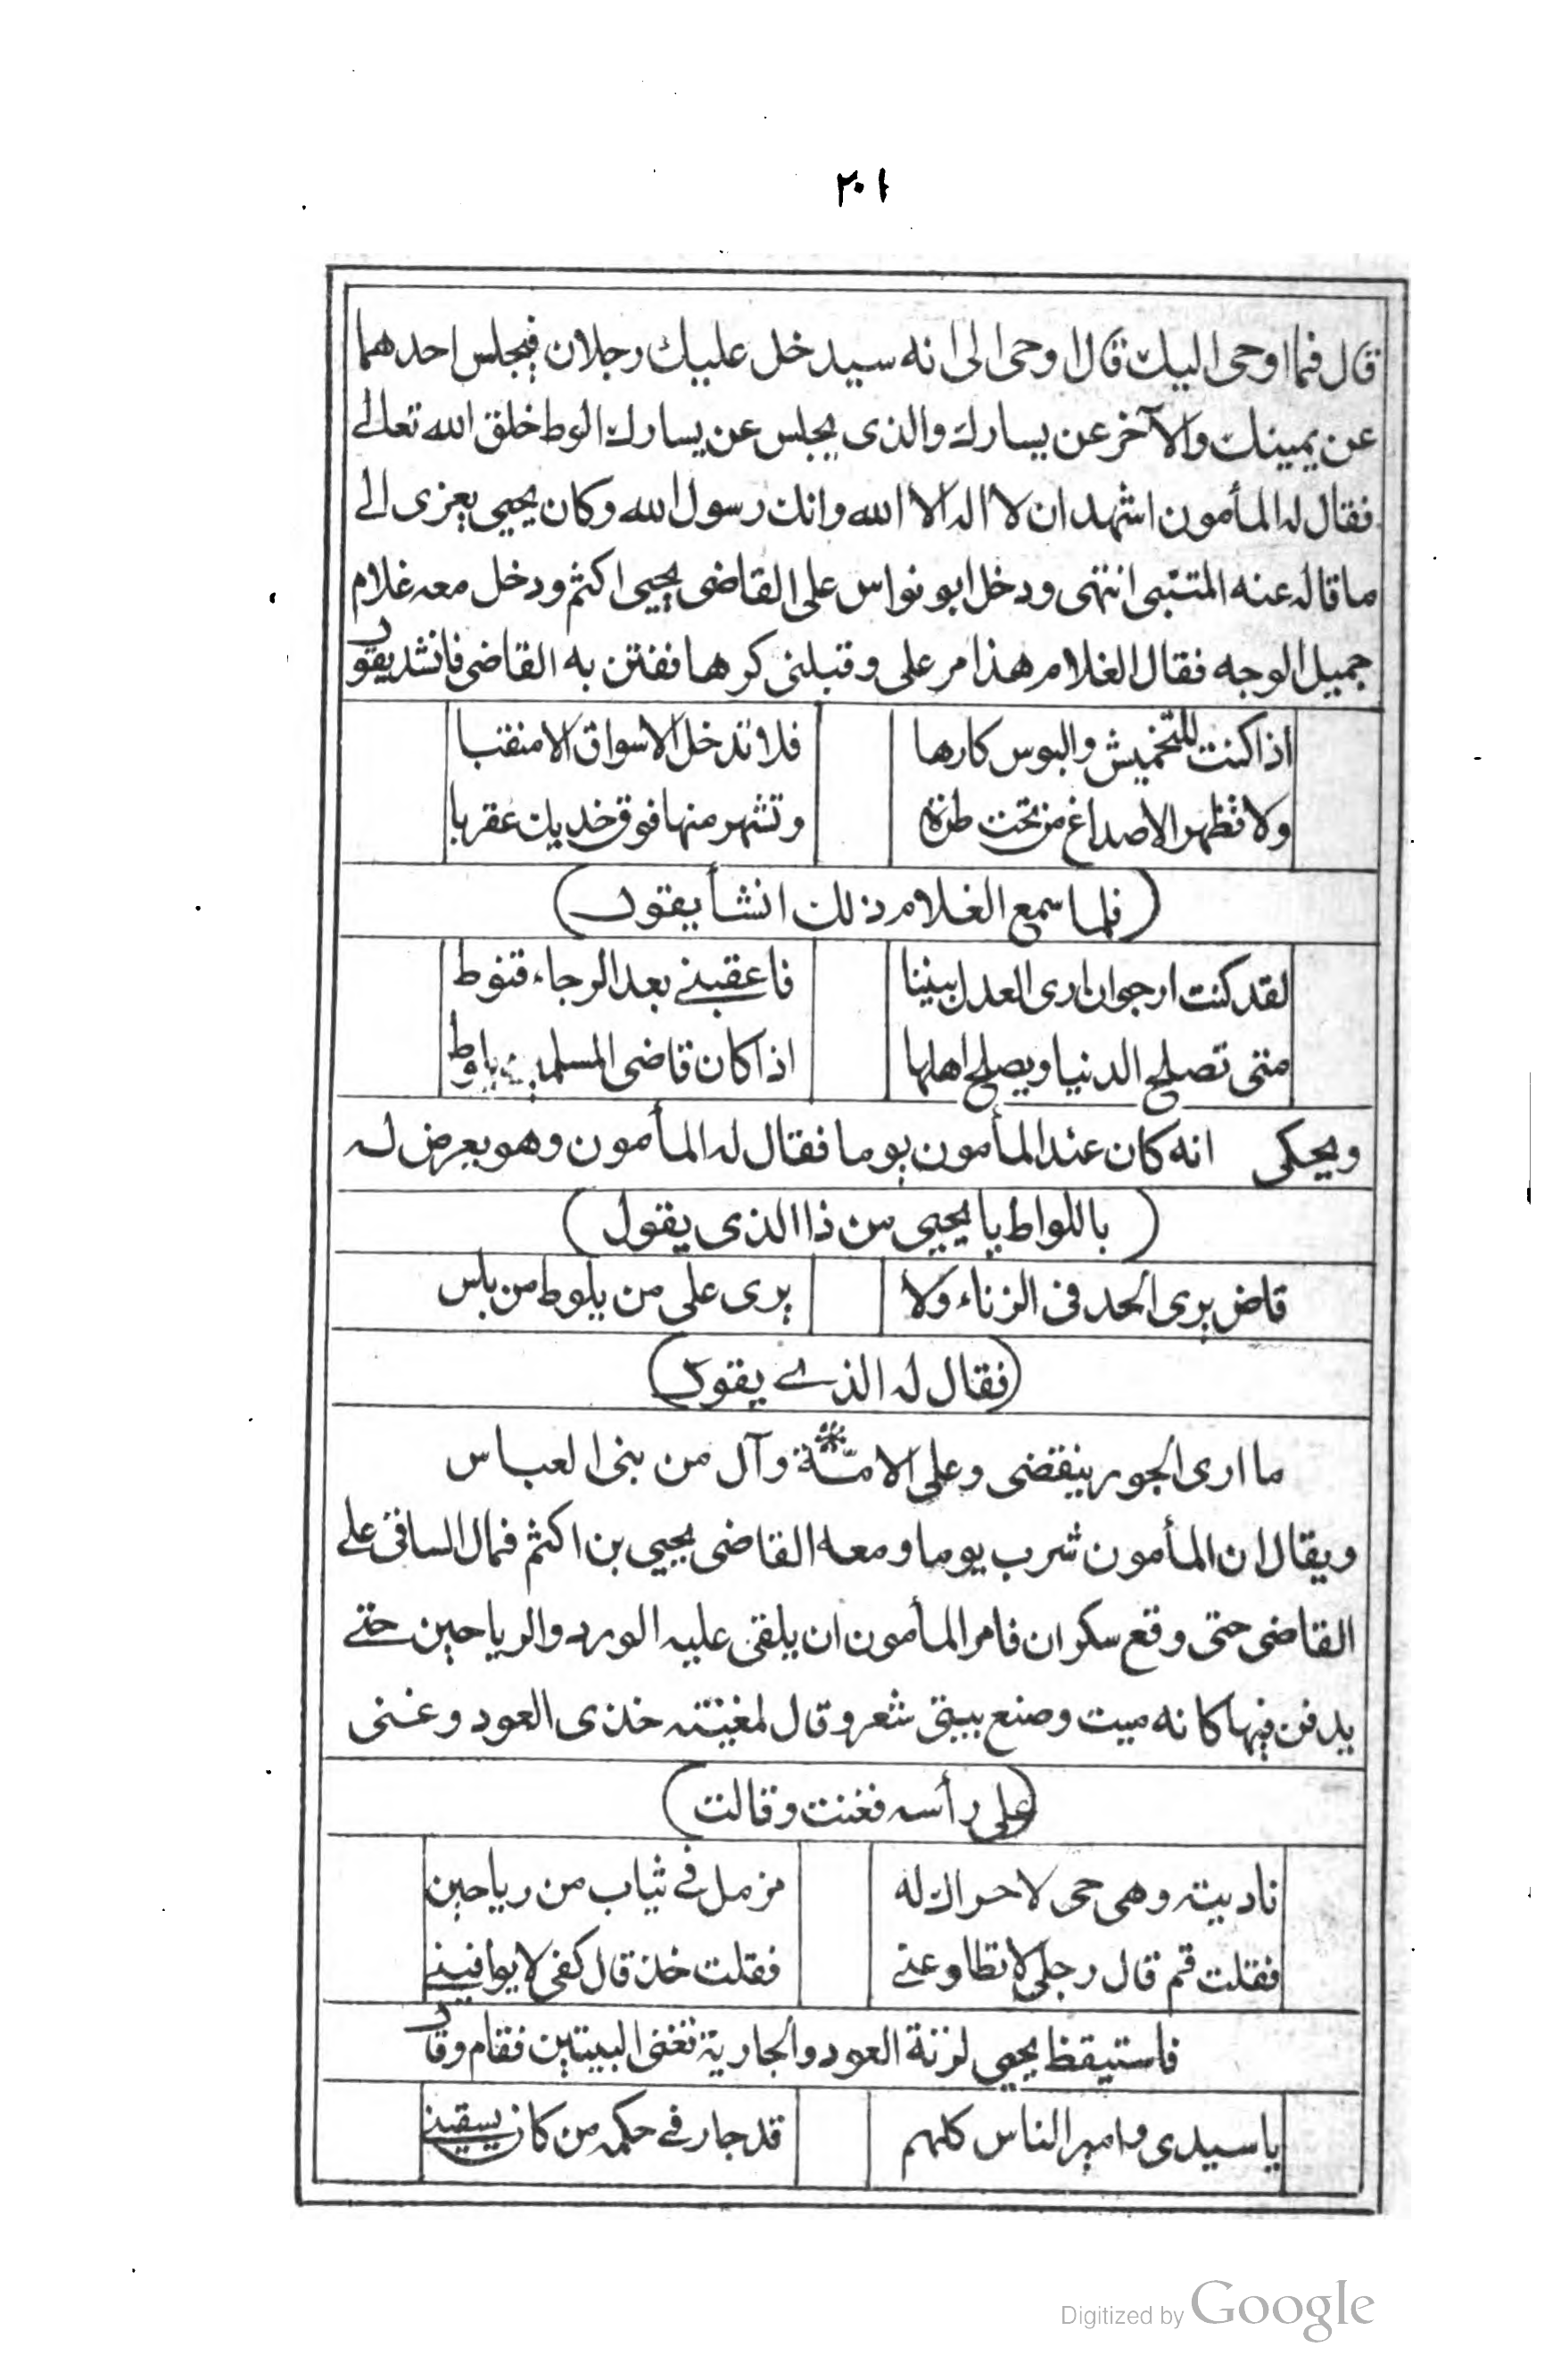 ٢٠١
قال فما اوحى اليك قال اوحى الى انه سيدخل عليك رجلان فيجلس احدهما
عن يمينك والآخر عن يسارك والذى يجلس عن يسارك الوط خلق الله تعالى
فقال له المأمون اشهد ان لا اله الا الله وانك رسول الله وكان يحيى يعزى الى
ما قاله عنه المتنبى انتهى ودخل ابو نواس على القاضى يحيى اكثم ودخل معه غلام
جميل الوجه فقال الغلام هذا مر على وقبلنى كرها ففتن به القاضى فانشد يقول
اذا كنت للتخميش والبوس كارها فلا تدخل الاسواق الا منقبا
ولا تظهر الاصداغ من تحت طرة وتشهر منها فوق خديك عقربا
(فلما سمع الغلام ذلك انشأ يقول)
لقد كنت ارجو ان ارى العدل بيننا فاعقبنى بعد الرجاء قنوط
متى تصلح الدنيا ويصلح اهلها اذا كان قاضى المسلمين يلوط
ويحكى انه كان عند المأمون يوما فقال له المأمون وهو يعرض له
(باللواط يا يحيى من ذا الذى يقول)
قاض يرى الحد فى الزناء ولا يرى على من يلوط من باس
(فقال له الذى يقول)
ما ارى الجور ينقضى وعلى الامّة وآل من بنى العباس
ويقال ان المأمون شرب يوما ومعه القاضى يحيى بن اكثم فمال الساقى على
القاضى حتى وقع سكران فامر المأمون ان يلقى عليه الورد والرياحين حتى
يدفن فيها كانه ميت وصنع بيتى شعر وقال لمغنيته خذى العود وغنى
(على رأسه فغنت وقالت)
ناديته وهى حى لا حراك له مزمل فى ثياب من رياحين
فقلت قم قال رجلى لا تطاوعنى فقلت خذ قال كفى لا يوافينى
فاستيقظ يحيى لرنة العود والجارية تغنى البيتين فقام وقال
يا سيدى وامير الناس كلهم قد جار فى حكمه من كان يسقينى
Digitized by Google